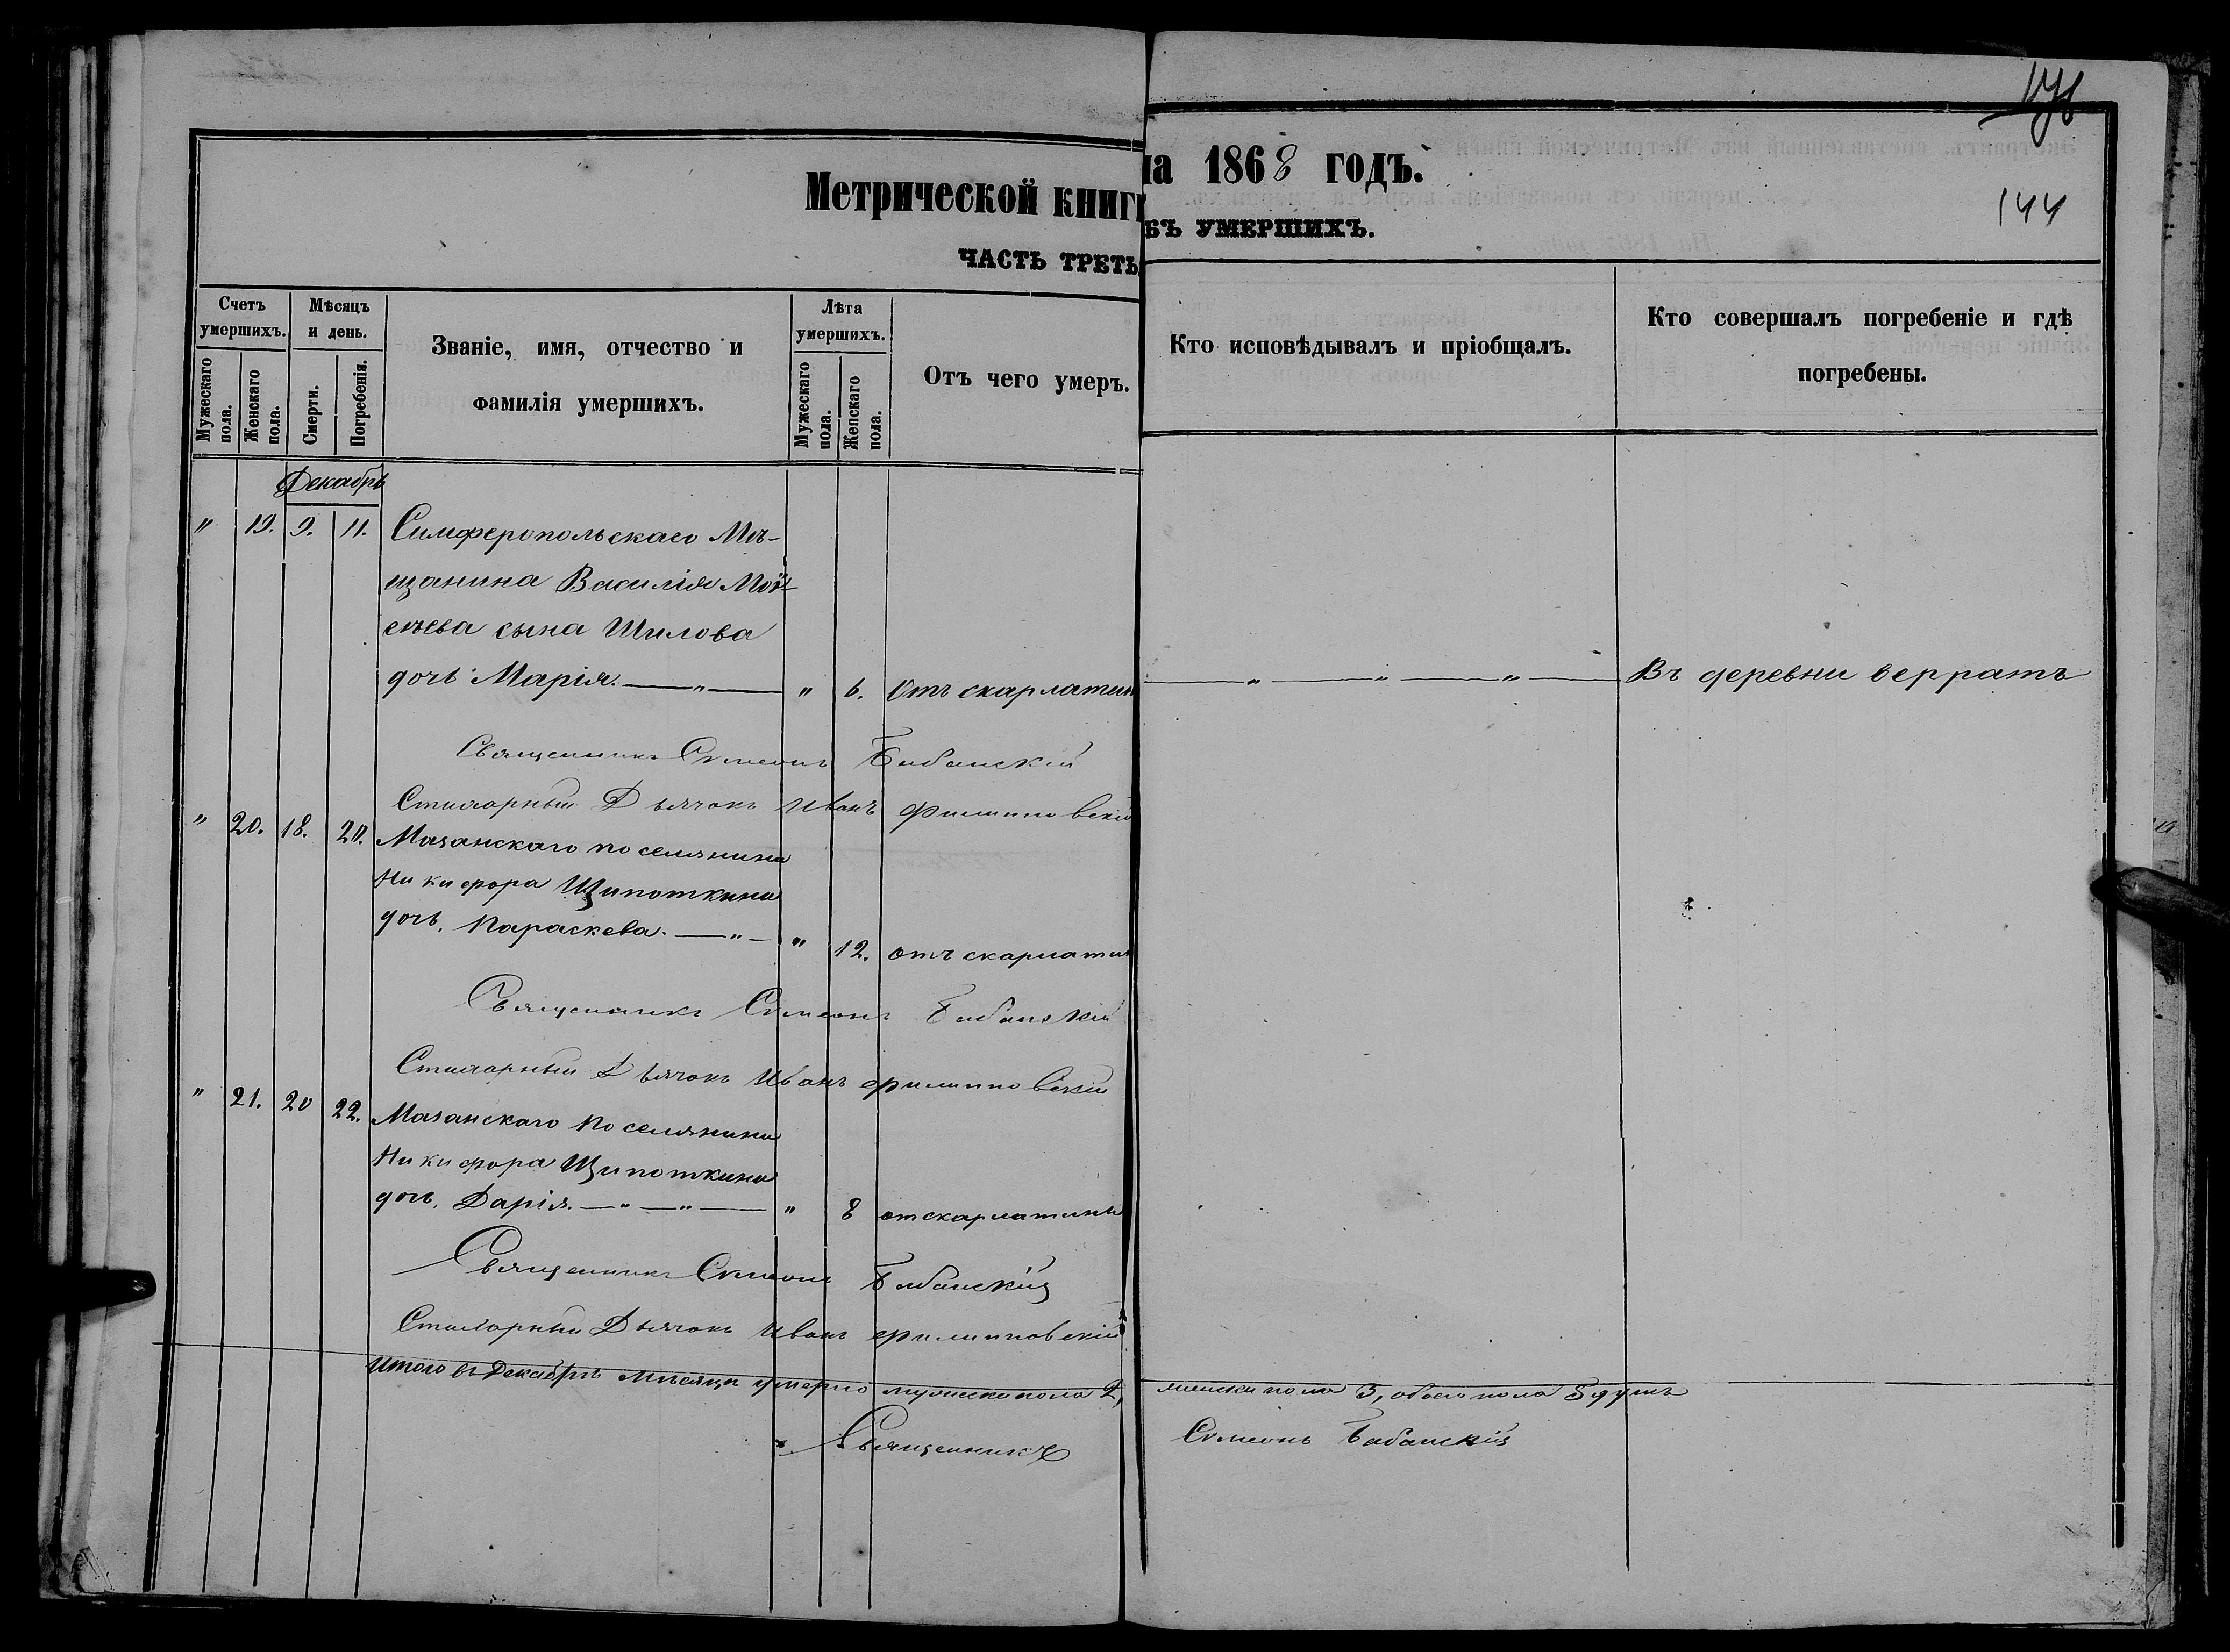 144
Метрической книги на 1868 годъ.
ЧАСТЬ ТРЕТЬ ѢЪ УМЕРШИХЪ.
Счетъ умершихъ.
Мужескаго пола.
Женскаго пола.
Мѣсяцъ и день.
Смерти.
Погребенія.
Званіе, имя, отчество и
фамилія умершихъ.
Лѣта умершихъ.
Мужескаго пола.
Женскаго пола.
Отъ чего умеръ.
Кто исповѣдывалъ и пріобщалъ.
Кто совершалъ погребеніе и гдѣ
погребены.
Декабрь
" 19. 9. 11. Симферопольскаго Мѣ-
щанина Василія Мои-
сѣева сына Шилова
дочь Марія. — " — " 6. Отъ скарлатин — " — " — " — Въ деревни
Священникъ Симеонъ Бабанскій
Стихарный Дьячокъ Иванъ Филиповскій
" 20. 18. 20. Мазанскаго поселянина
Никифора Щипоткина
дочь, Параскева. — " — " 12. отъ скарлатин
Священникъ Симеонъ Бабанскій
Стихарный Дьячокъ Иванъ Филиповскій
" 21. 20 22. Мазанскаго поселянина
Никифора Щипоткина
дочь, Дарія. — " — " — " 8 от скарлатины
Священникъ Симеонъ Бабанскій
Стихарный Дьячокъ Иванъ Филиповскій
Итого въ Декабрѣ мѣсяцѣ умерло мужеска пола 2, женска пола 3, обоего пола 5 душъ
Священникъ Симеонъ Бабанскій